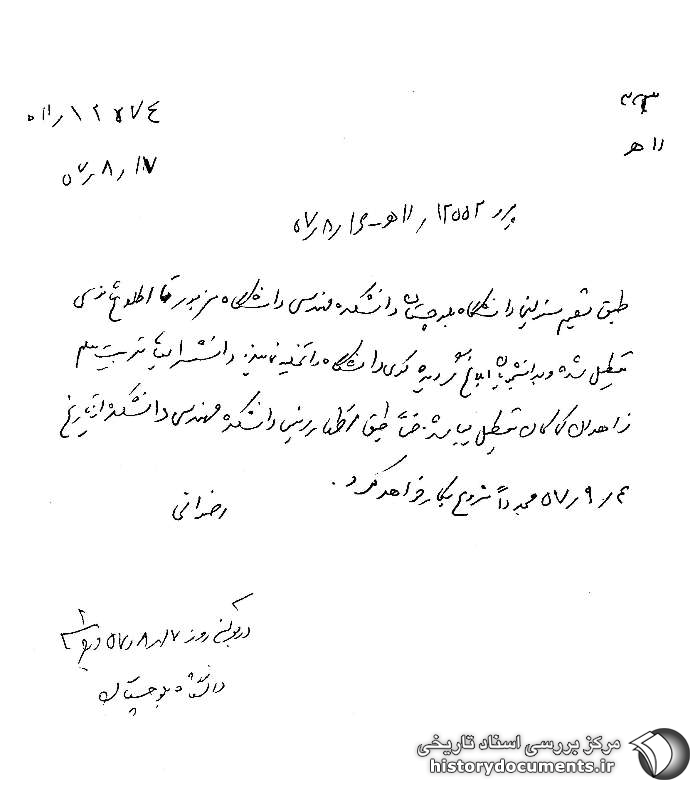 ۳۴۳
۱۱ هـ
۱۲۵۷۴ / ۱۱ ه
۵۷ / ۸ / ۱۷
پیرو ۱۲۵۵۲ / ۱۱ هـ - ۵۷/۸/۱۶
طبق تصمیم مسئولین دانشگاه بلوچستان دانشکده مهندسی دانشگاه مزبور تا اطلاع ثانوی
تعطیل شده و به دانشجویان ابلاغ گردیده کوی دانشگاه را تخلیه نمایند. دانشسرایعالی تربیت معلم
زاهدان کماکان تعطیل میباشد. ضمناً طبق اظهار رئیس دانشکده مهندسی دانشکده از تاریخ
۵۷/۹/۴ مجدداً شروع بکار خواهد کرد.
رضوانی
در بولتن روز ۵۷/۸/۱۷ درج
دانشگاه بلوچستان
مرکز بررسی اسناد تاریخی
historydocuments.ir